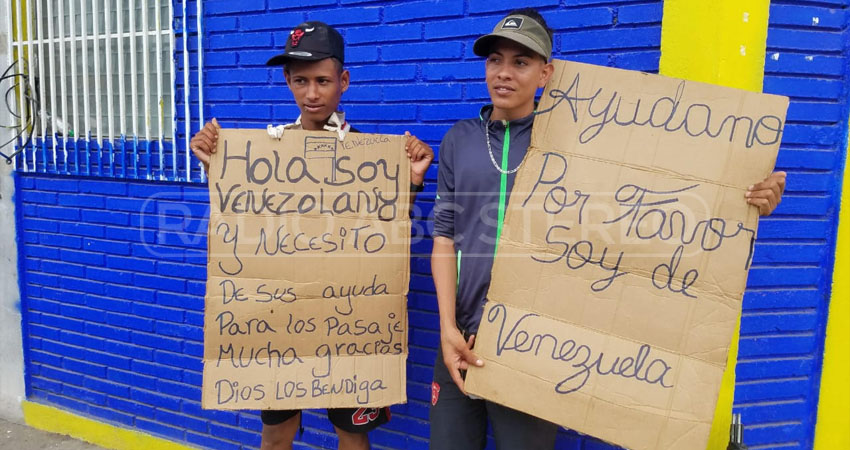 Venezuela
Hola soy
VENEZOLANO
Y NECESITO
De sus ayuda
Para los Pasaje
Mucha gracias
Dios LOS BENDIGA
Ayudano
Por Favor
Soy de
Venezuela
RADIO ABC STEREO
23